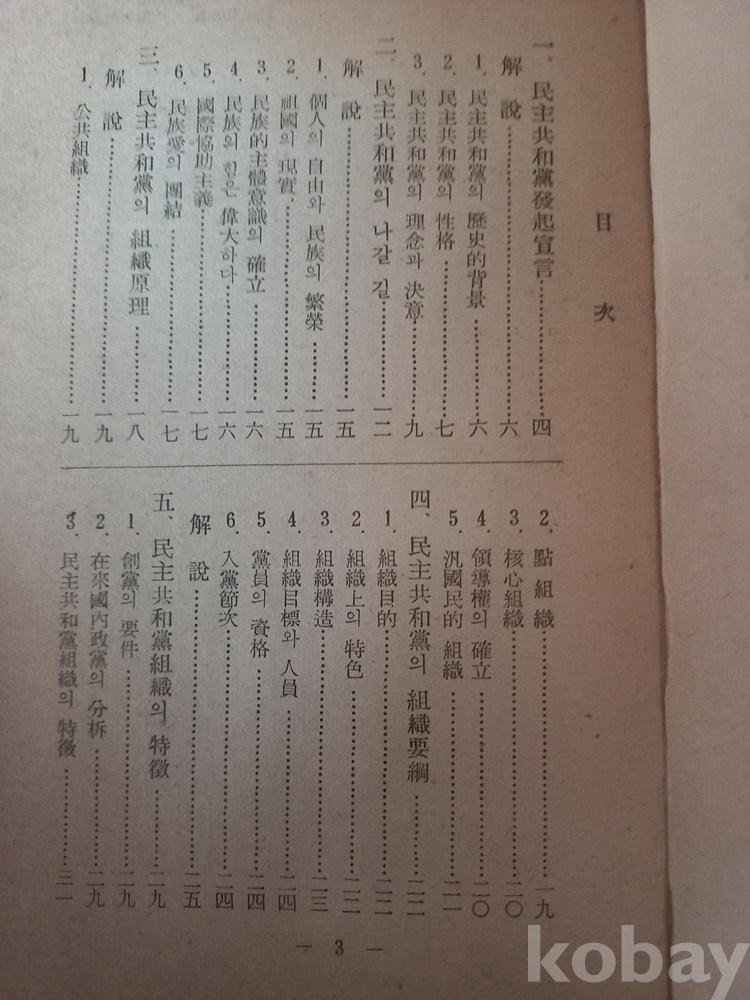 目次
一、民主共和黨發起宣言 四
解說 六
1. 民主共和黨의 歷史的背景 六
2. 民主共和黨의 性格 七
3. 民主共和黨의 理念과 決意 九
二、民主共和黨의 나갈 길 一二
解說 一五
1. 個人의 自由와 民族의 繁榮 一五
2. 祖國의 現實 一五
3. 民族的主體意識의 確立 一六
4. 民族의 힘은 偉大하다 一六
5. 國際協助主義 一七
6. 民族愛의 團結 一七
三、民主共和黨의 組織原理 一八
解說 一九
1. 公共組織 一九
2. 點組織 一九
3. 核心組織 二〇
4. 領導權의 確立 二〇
5. 汎國民的 組織 二一
四、民主共和黨의 組織要綱 二二
1. 組織目的 二二
2. 組織上의 特色 二二
3. 組織構造 二三
4. 組織目標와 人員 二四
5. 黨員의 資格 二四
6. 入黨節次 二四
解說 二五
五、民主共和黨組織의 特徵 二九
1. 創黨의 要件 二九
2. 在來國內政黨의 分析 二九
3. 民主共和黨組織의 特徵 三一
— 3 —
kobay